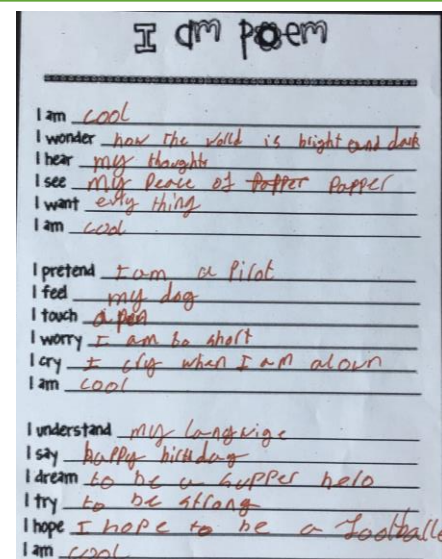 I am poem
I am cool
I wonder how the world is bright and dark
I hear my thoughts
I see my peace of papper
I want evry thing
I am cool
I pretend I am a pilot
I feel my dog
I touch a pen
I worry I am bo short
I cry I cry when I am alown
I am cool
I understand my langwige
I say happy birthday
I dream to be a supper hero
I try to be strong
I hope I hope to be a football
I am cool